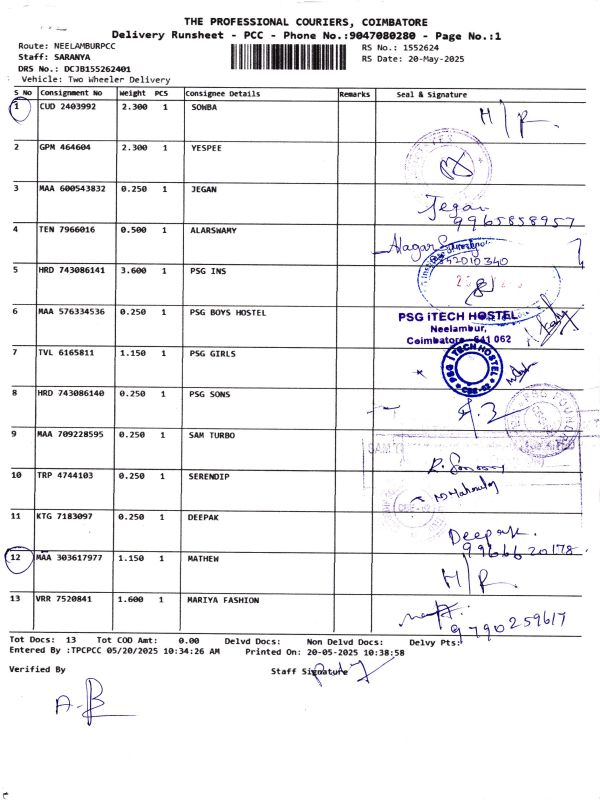 THE PROFESSIONAL COURIERS, COIMBATORE
Delivery Runsheet - PCC - Phone No.:9047080280 - Page No.:1
Route: NEELAMBURPCC
RS No.: 1552624
Staff: SARANYA
RS Date: 20-May-2025
DRS No.: DCJB155262401
Vehicle: Two Wheeler Delivery
S No Consignment No Weight PCS Consignee Details Remarks Seal & Signature
1 CUD 2403992 2.300 1 SOWBA H/R
2 GPM 464604 2.300 1 YESPEE
3 MAA 600543832 0.250 1 JEGAN Jegan
9965858957
4 TEN 7966016 0.500 1 ALARSWAMY
5 HRD 743086141 3.600 1 PSG INS
6 MAA 576334536 0.250 1 PSG BOYS HOSTEL PSG iTECH HOSTEL
Neelambur,
Coimbatore - 641 062
7 TVL 6165811 1.150 1 PSG GIRLS PSG ITECH HOSTEL
8 HRD 743086140 0.250 1 PSG SONS
9 MAA 709228595 0.250 1 SAM TURBO
10 TRP 4744103 0.250 1 SERENDIP
11 KTG 7183097 0.250 1 DEEPAK Deepak.
9966620178
12 MAA 303617977 1.150 1 MATHEW H/R
13 VRR 7520841 1.600 1 MARIYA FASHION
9790259617
Tot Docs: 13 Tot COD Amt: 0.00 Delvd Docs: Non Delvd Docs: Delvy Pts:
Entered By :TPCPCC 05/20/2025 10:34:26 AM Printed On: 20-05-2025 10:38:58
Verified By Staff Signature